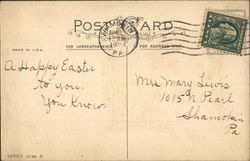 POST CARD
SHAMOKIN
PA.
MADE IN U.S.A.
FOR CORRESPONDENCE
FOR ADDRESS ONLY
A Happy Easter
to You.
You Know.
Mrs Mary Lewis
1015 N Pearl
Shamokin
Pa
SERIES